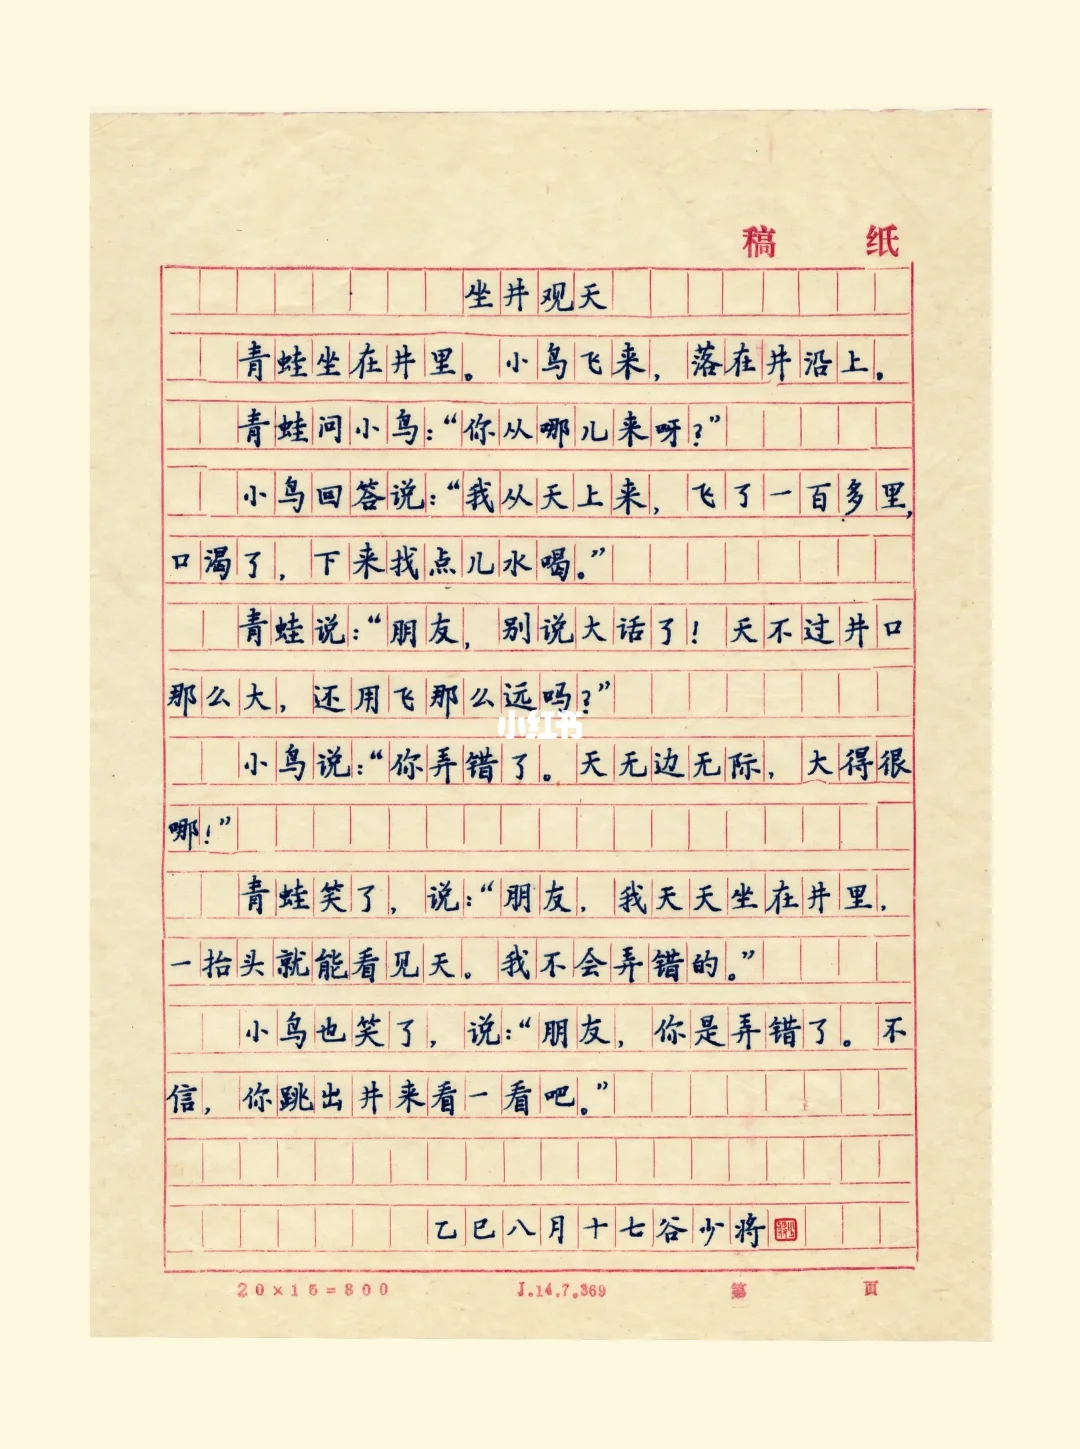 稿 纸
坐井观天
青蛙坐在井里。小鸟飞来，落在井沿上。
青蛙问小鸟：“你从哪儿来呀？”
小鸟回答说：“我从天上来，飞了一百多里，
口渴了，下来找点儿水喝。”
青蛙说：“朋友，别说大话了！天不过井口
那么大，还用飞那么远吗？”
小红书
小鸟说：“你弄错了。天无边无际，大得很
哪！”
青蛙笑了，说：“朋友，我天天坐在井里，
一抬头就能看见天。我不会弄错的。”
小鸟也笑了，说：“朋友，你是弄错了。不
信，你跳出井来看一看吧。”
乙巳八月十七谷少将
20×15=300 J.14.7.369 第 页